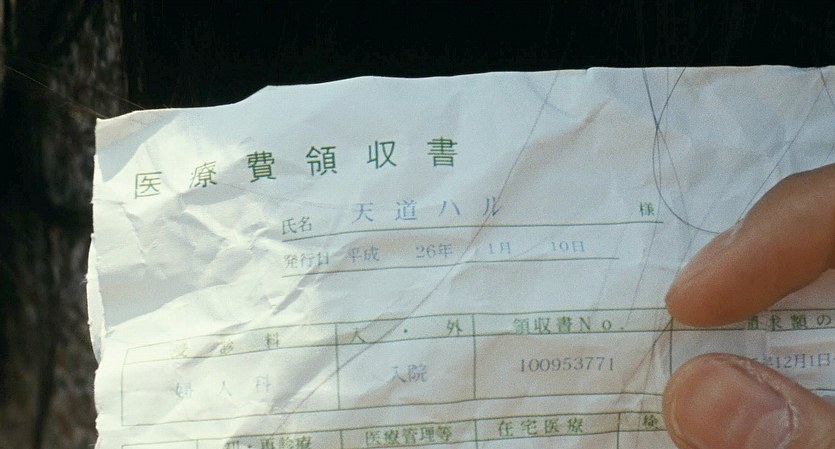 医療費領収書
氏名 天道ハル 様
発行日 平成 26年 1月 10日
受診科 入・外 領収書No. 請求額の
婦人科 入院 100953771 年12月1日
初・再診療 医療管理等 在宅医療 検